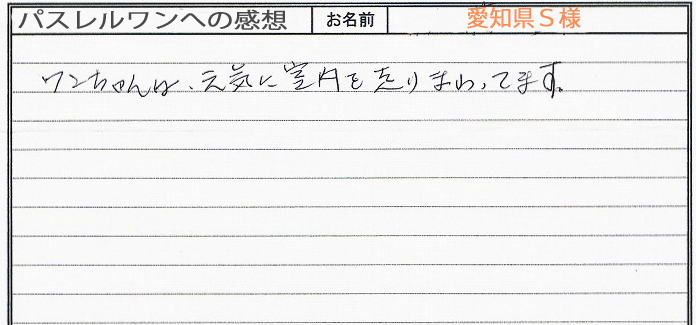 パスレルワンへの感想 お名前 愛知県S様
ワンちゃんは、元気に室内を走りまわってます。